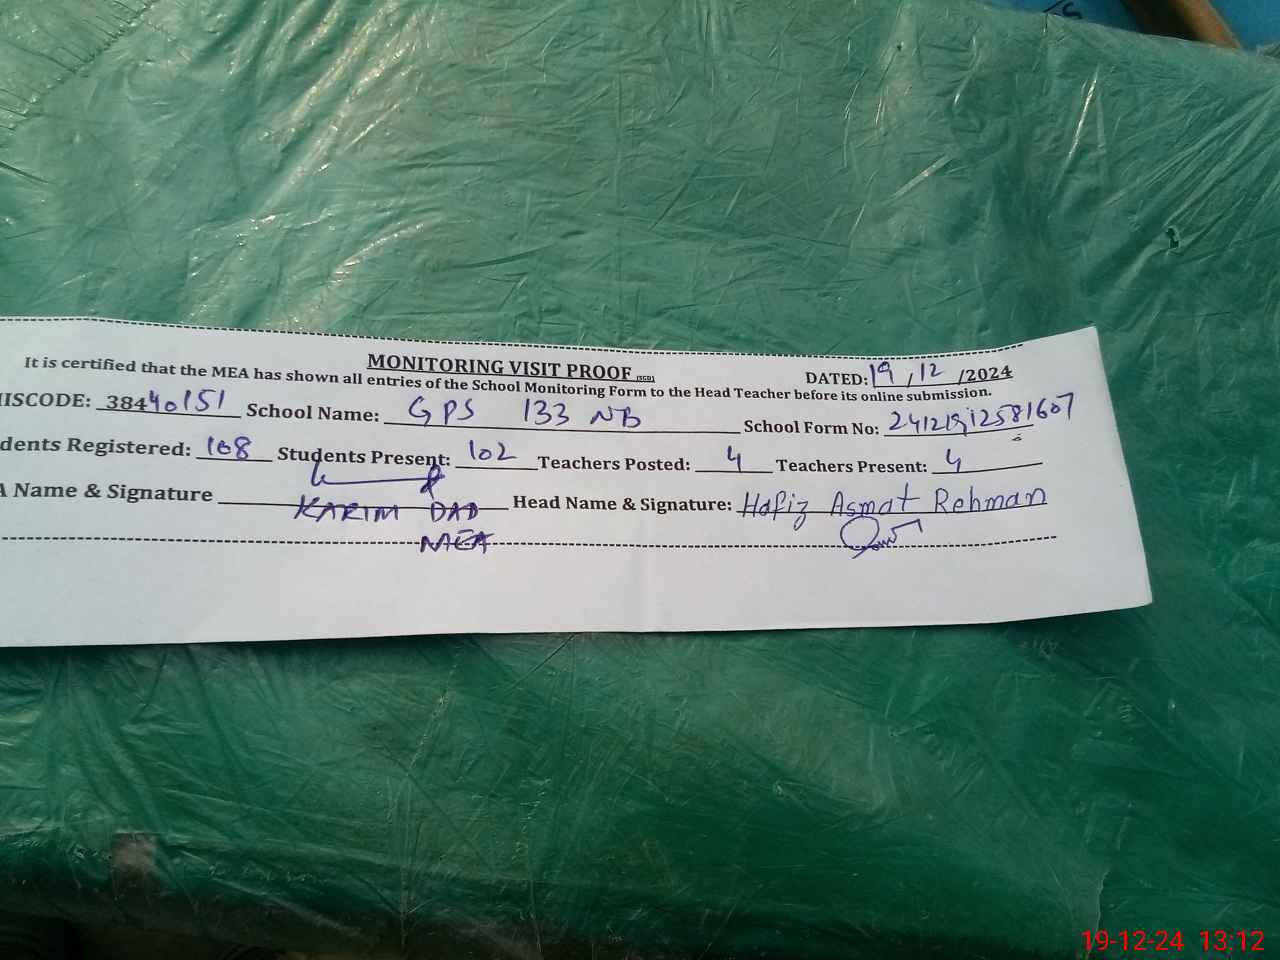 MONITORING VISIT PROOF (SGD)
DATED: 19/12/2024
It is certified that the MEA has shown all entries of the School Monitoring Form to the Head Teacher before its online submission.
ISCODE: 38440151 School Name: GPS 133 NB School Form No:
dents Registered: 108 Students Present: 102 Teachers Posted: 4 Teachers Present: 4
A Name & Signature KARIM DAD Head Name & Signature: Hafiz Asmat Rehman
MEA
19-12-24 13:12